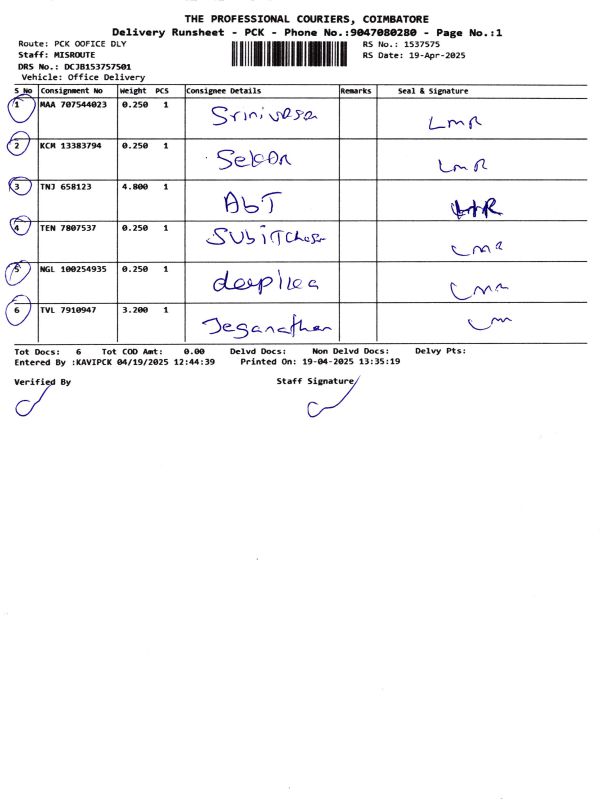 THE PROFESSIONAL COURIERS, COIMBATORE
Delivery Runsheet - PCK - Phone No.:9047080280 - Page No.:1
Route: PCK OOFICE DLY RS No.: 1537575
Staff: MISROUTE RS Date: 19-Apr-2025
DRS No.: DCJB153757501
Vehicle: Office Delivery
S No Consignment No Weight PCS Consignee Details Remarks Seal & Signature
1 MAA 707544023 0.250 1 Srinivasa LMR
2 KCM 13383794 0.250 1 Sekar LMR
3 TNJ 658123 4.800 1 AbT
4 TEN 7807537 0.250 1
5 NGL 100254935 0.250 1
6 TVL 7910947 3.200 1 Jeganathan
Tot Docs: 6 Tot COD Amt: 0.00 Delvd Docs: Non Delvd Docs: Delvy Pts:
Entered By :KAVIPCK 04/19/2025 12:44:39 Printed On: 19-04-2025 13:35:19
Verified By Staff Signature